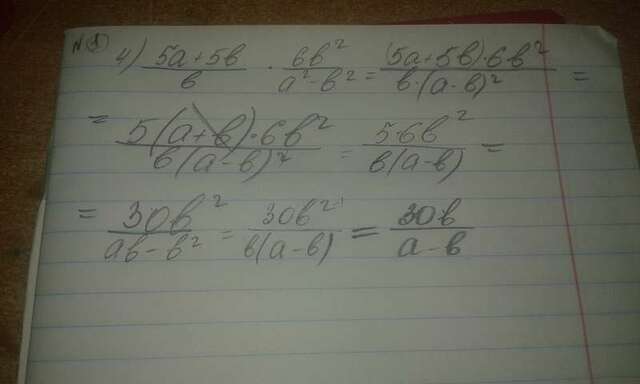 N①
4) (5a+5b)/b · 6b²/(a²-b²) = ((5a+5b)·6b²)/(b·(a-b)²) =
= (5(a+b)·6b²)/(b(a-b)²) = (5·6b²)/(b(a-b)) =
= 30b²/(ab-b²) = 30b²/(b(a-b)) = 30b/(a-b)